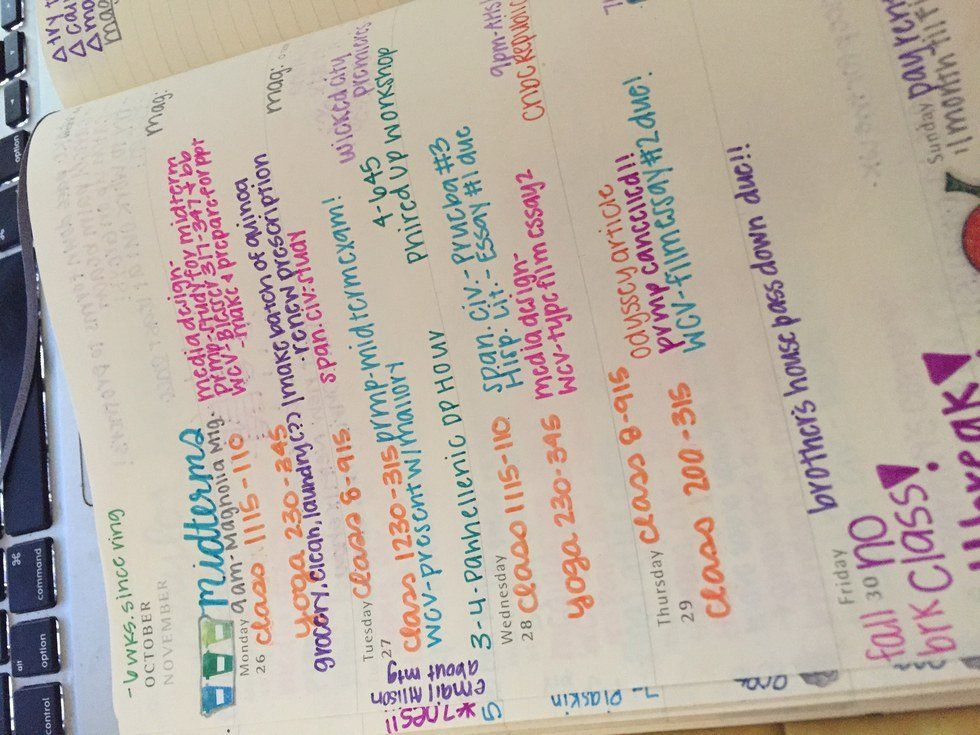 -6 wks. since ring
OCTOBER
NOVEMBER
midterms
Monday
26
9am-Magnolia Mtg.
class 1115-110
yoga 230-345
grocery, clean, laundry(??)
media design-
prmp-study for midterm
wcv-Blaser 317-347 + bb
-make & prepare for ppt
/make batch of quinoa
-renew prescription
span.civ: study
mag:
Tuesday
27
class 8-915
class 1230-315
wcv-present w/mallory
3-4-Panhellenic DP Houv
prmp-midterm exam!
4-645
Phired Up Workshop
mag:
wicked city
premieres
Wednesday
28
class 1115-110
yoga 230-345
span. Civ.- Prueba #3
Hisp. Lit.- Essay #1 due
media design-
wcv-type film essay 2
9pm-AHS
cnbc Republic
Thursday
29
class 8-915
class 200-315
odyssey article
prmp canceled!!
wcv-film essay #2 due!
brother's house pass down due!!
Friday
30
no
class!
fall
brk
break!
Sunday
pay rent
mag
option
alt
option
command
control
*7 nes!!
email Allison
about mtg
5
7-